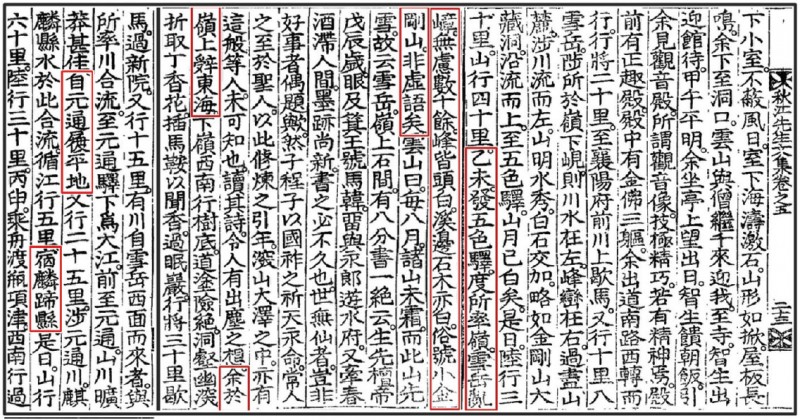 下小室不蔽風日室下海濤激石山形如掀屋板長
秋江先生文集卷之五
鳴余下至洞口雲山與僧繼千來迎我至寺智生出
迎館待甲午平明余坐亭上望出日智生饋朝飯引
余見觀音殿所謂觀音像技極精巧若有精神焉殿
前有正趣殿殿中有金佛三軀余出道南路西轉而
行行將二十里至襄陽府前川上歇馬又行十里入
雪岳陟所於嶺下峴則川水在左峰巒在右過盡山
麓涉川流而左山明水秀白石交加略如金剛山大
藏洞沿流而上至五色驛山月已白矣是日陸行三
十里山行四十里乙未發五色驛度所率嶺雪岳亂
嶂無慮數十餘峰皆頭白溪邊石木亦白俗號小金
剛山非虛語矣雲山曰每八月諸山未霜而此山先
雪故云雪岳嶺上石間有八分書一絶云生先檀帝
戊辰歲眼及箕王號馬韓留與永郎遊水府又牽春
酒滯人間墨跡尚新書之必不久也世無仙者豈非
好事者偶題歟然子程子以國祚之祈天永命常人
之至於聖人以此修煉之引年深山大澤之中亦有
這般等人未可知也讀其詩令人有出塵之想余於
嶺上辭東海下嶺西南行樹底道險絶洞壑幽深
折取丁香花插馬鞍以聞香過眠巖行將三十里歇
馬過新院又行十五里有川自雪岳西面而來者與
所率川合流至元通驛下爲大江前至元通山川曠
莽甚佳自元通履平地又行二十五里涉元通川麒
麟縣水於此合流循江行五里宿麟蹄縣是日山行
六十里陸行三十里丙申乘舟渡瓶項津西南行過